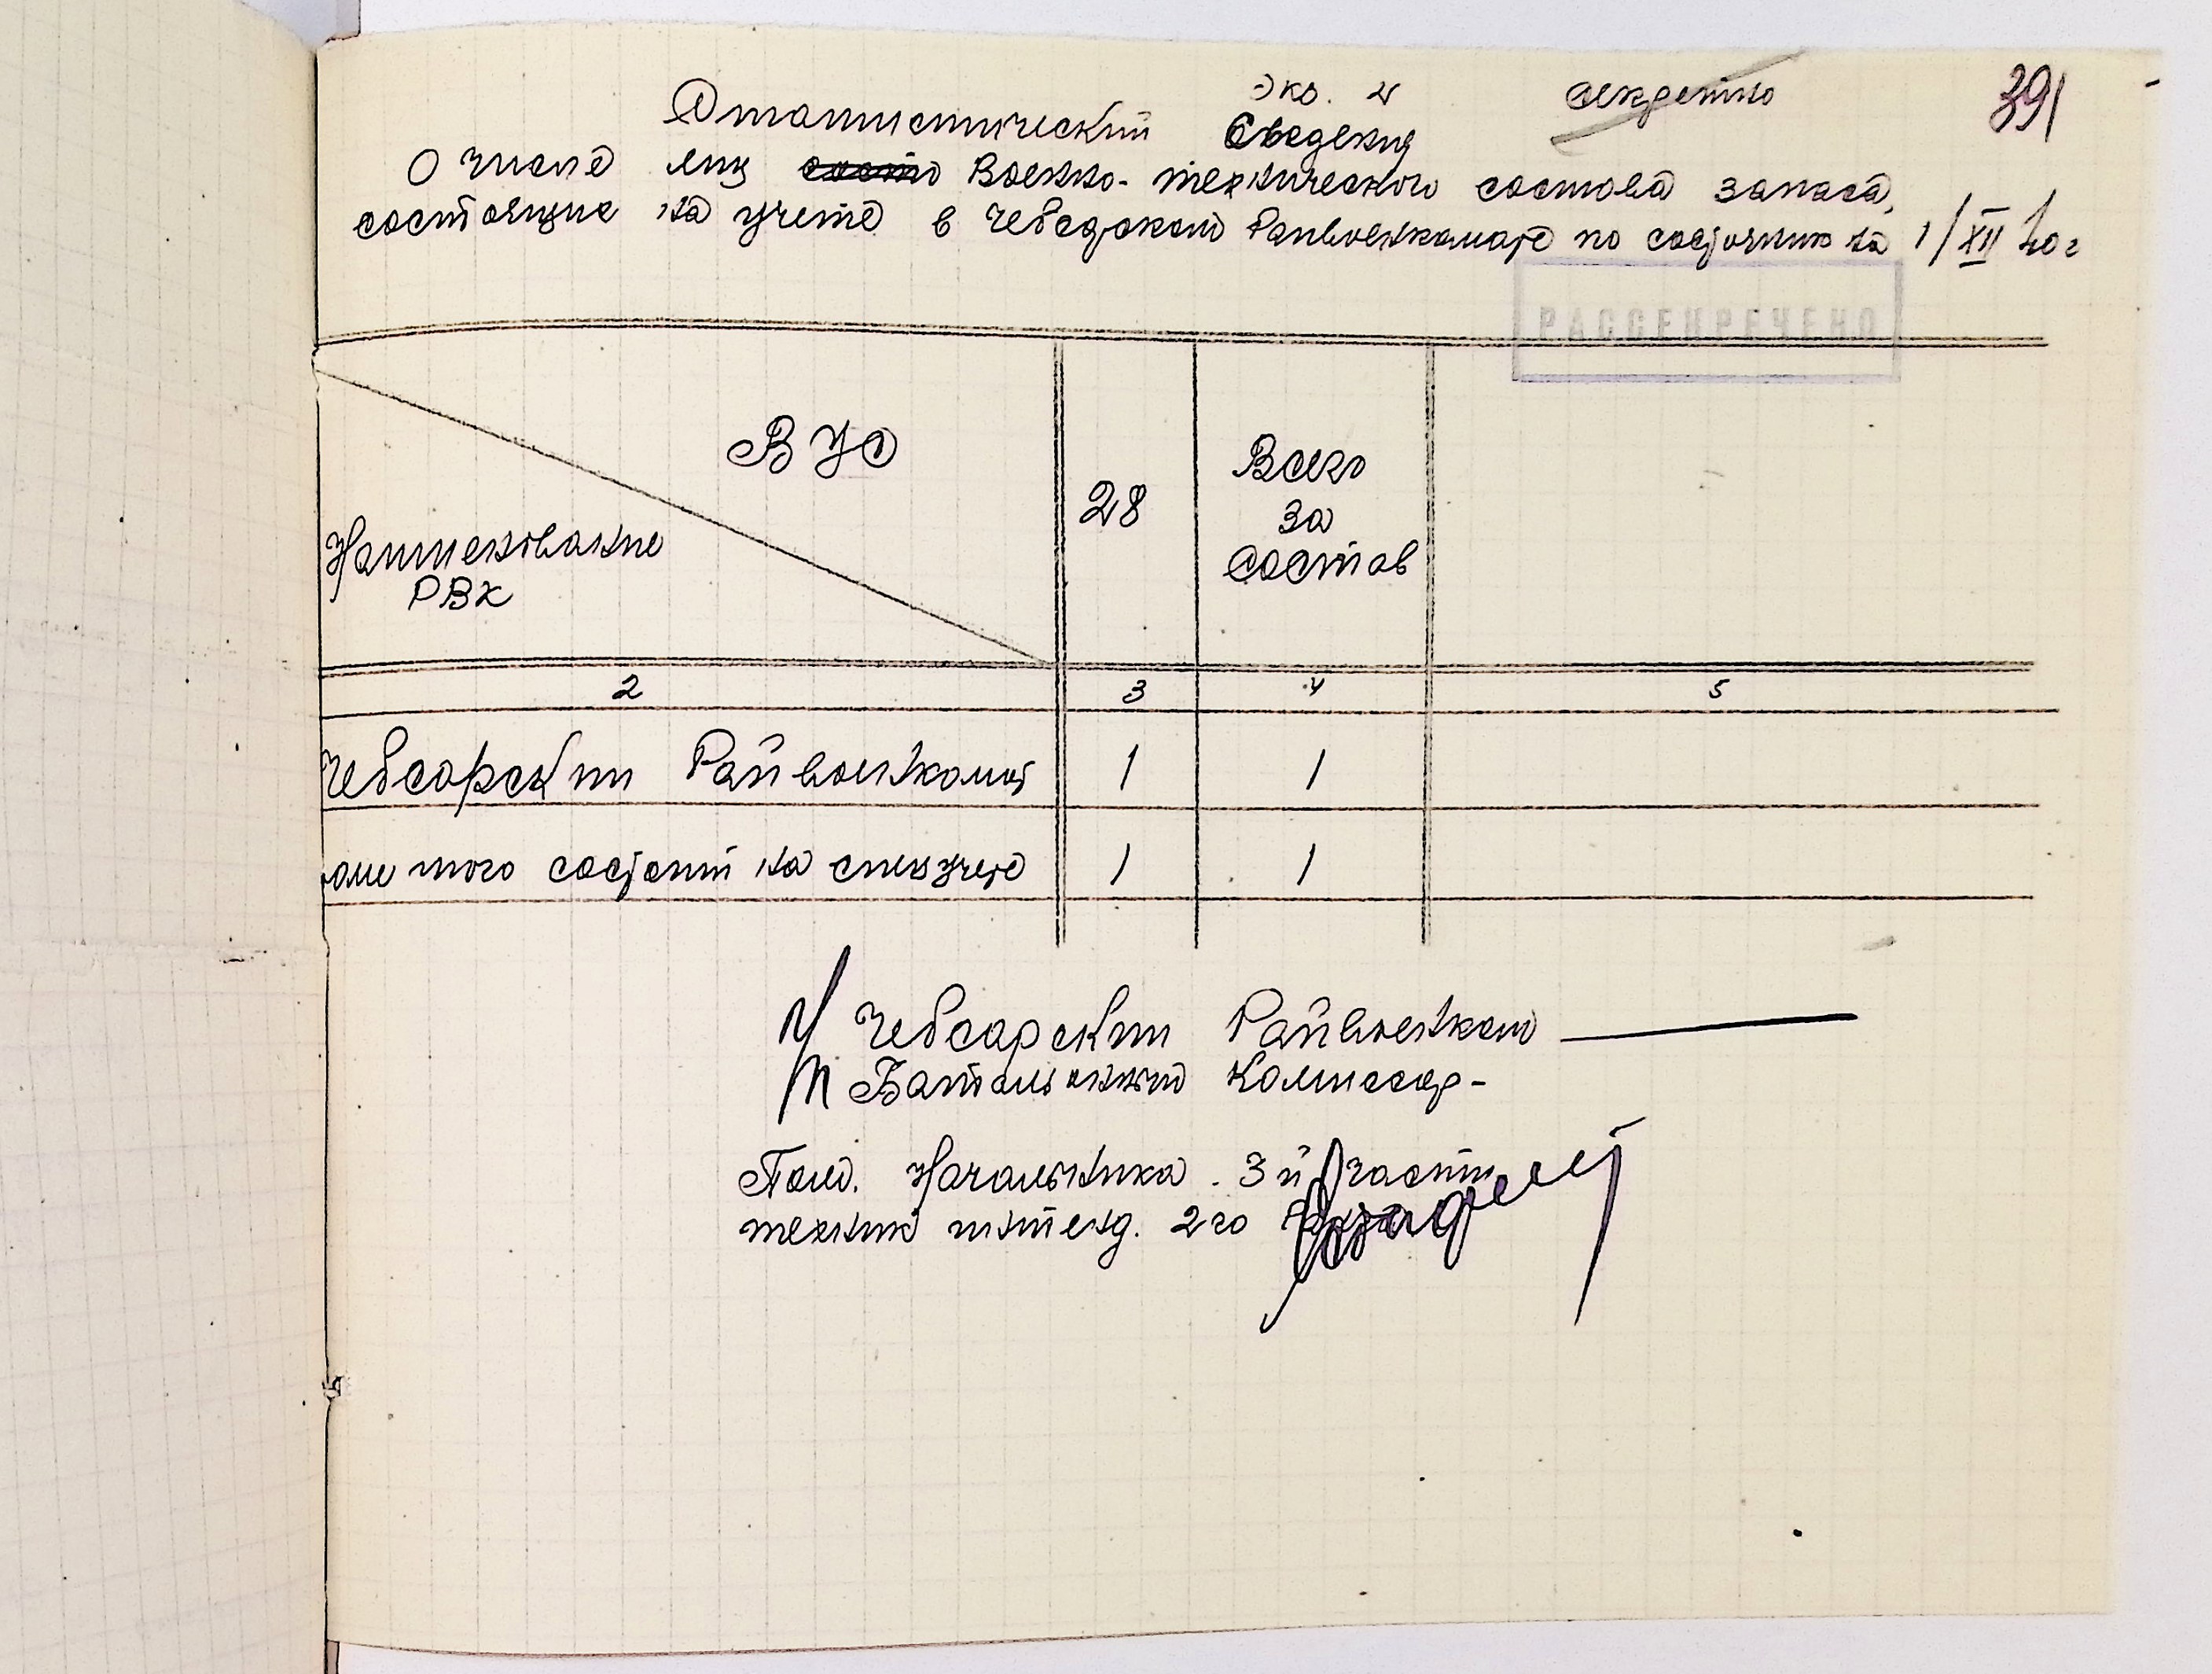 Экз. 2 секретно 391
Статистический Сведения
О числе лиц Военно-технического состова запаса,
состоящие на учете в Чебсарском Райвоенкомате по состоянию на 1/XII 40 г
РАССЕКРЕЧЕНО
ВУС
Наименование
РВК
28
Всего
за
состав
2 3 4 5
Чебсарский Райвоенкомат 1 1
оме того состоит на спецучете 1 1
Чебсарский Райвоенком
Батальонный Комиссар-
Пом. Начальника 3й части
техник интенд. 2го